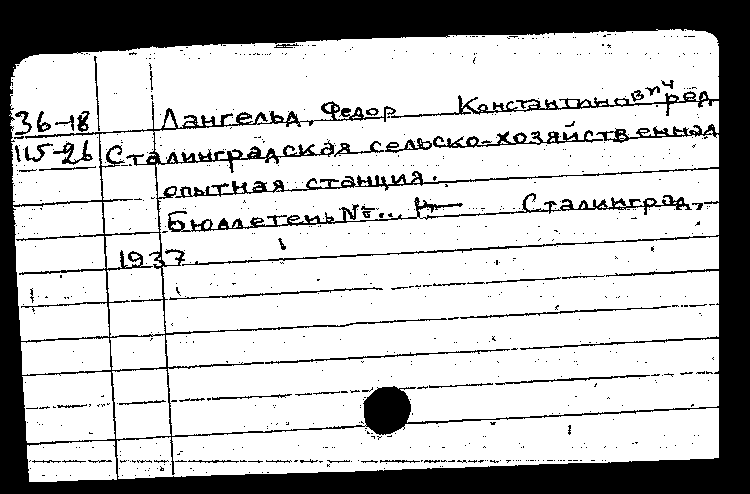 36-18 Лангельд, Федор Константинович ред
115-26 Сталинградская сельско-хозяйственная
опытная станция.
Бюллетень №... Сталинград,
1937.